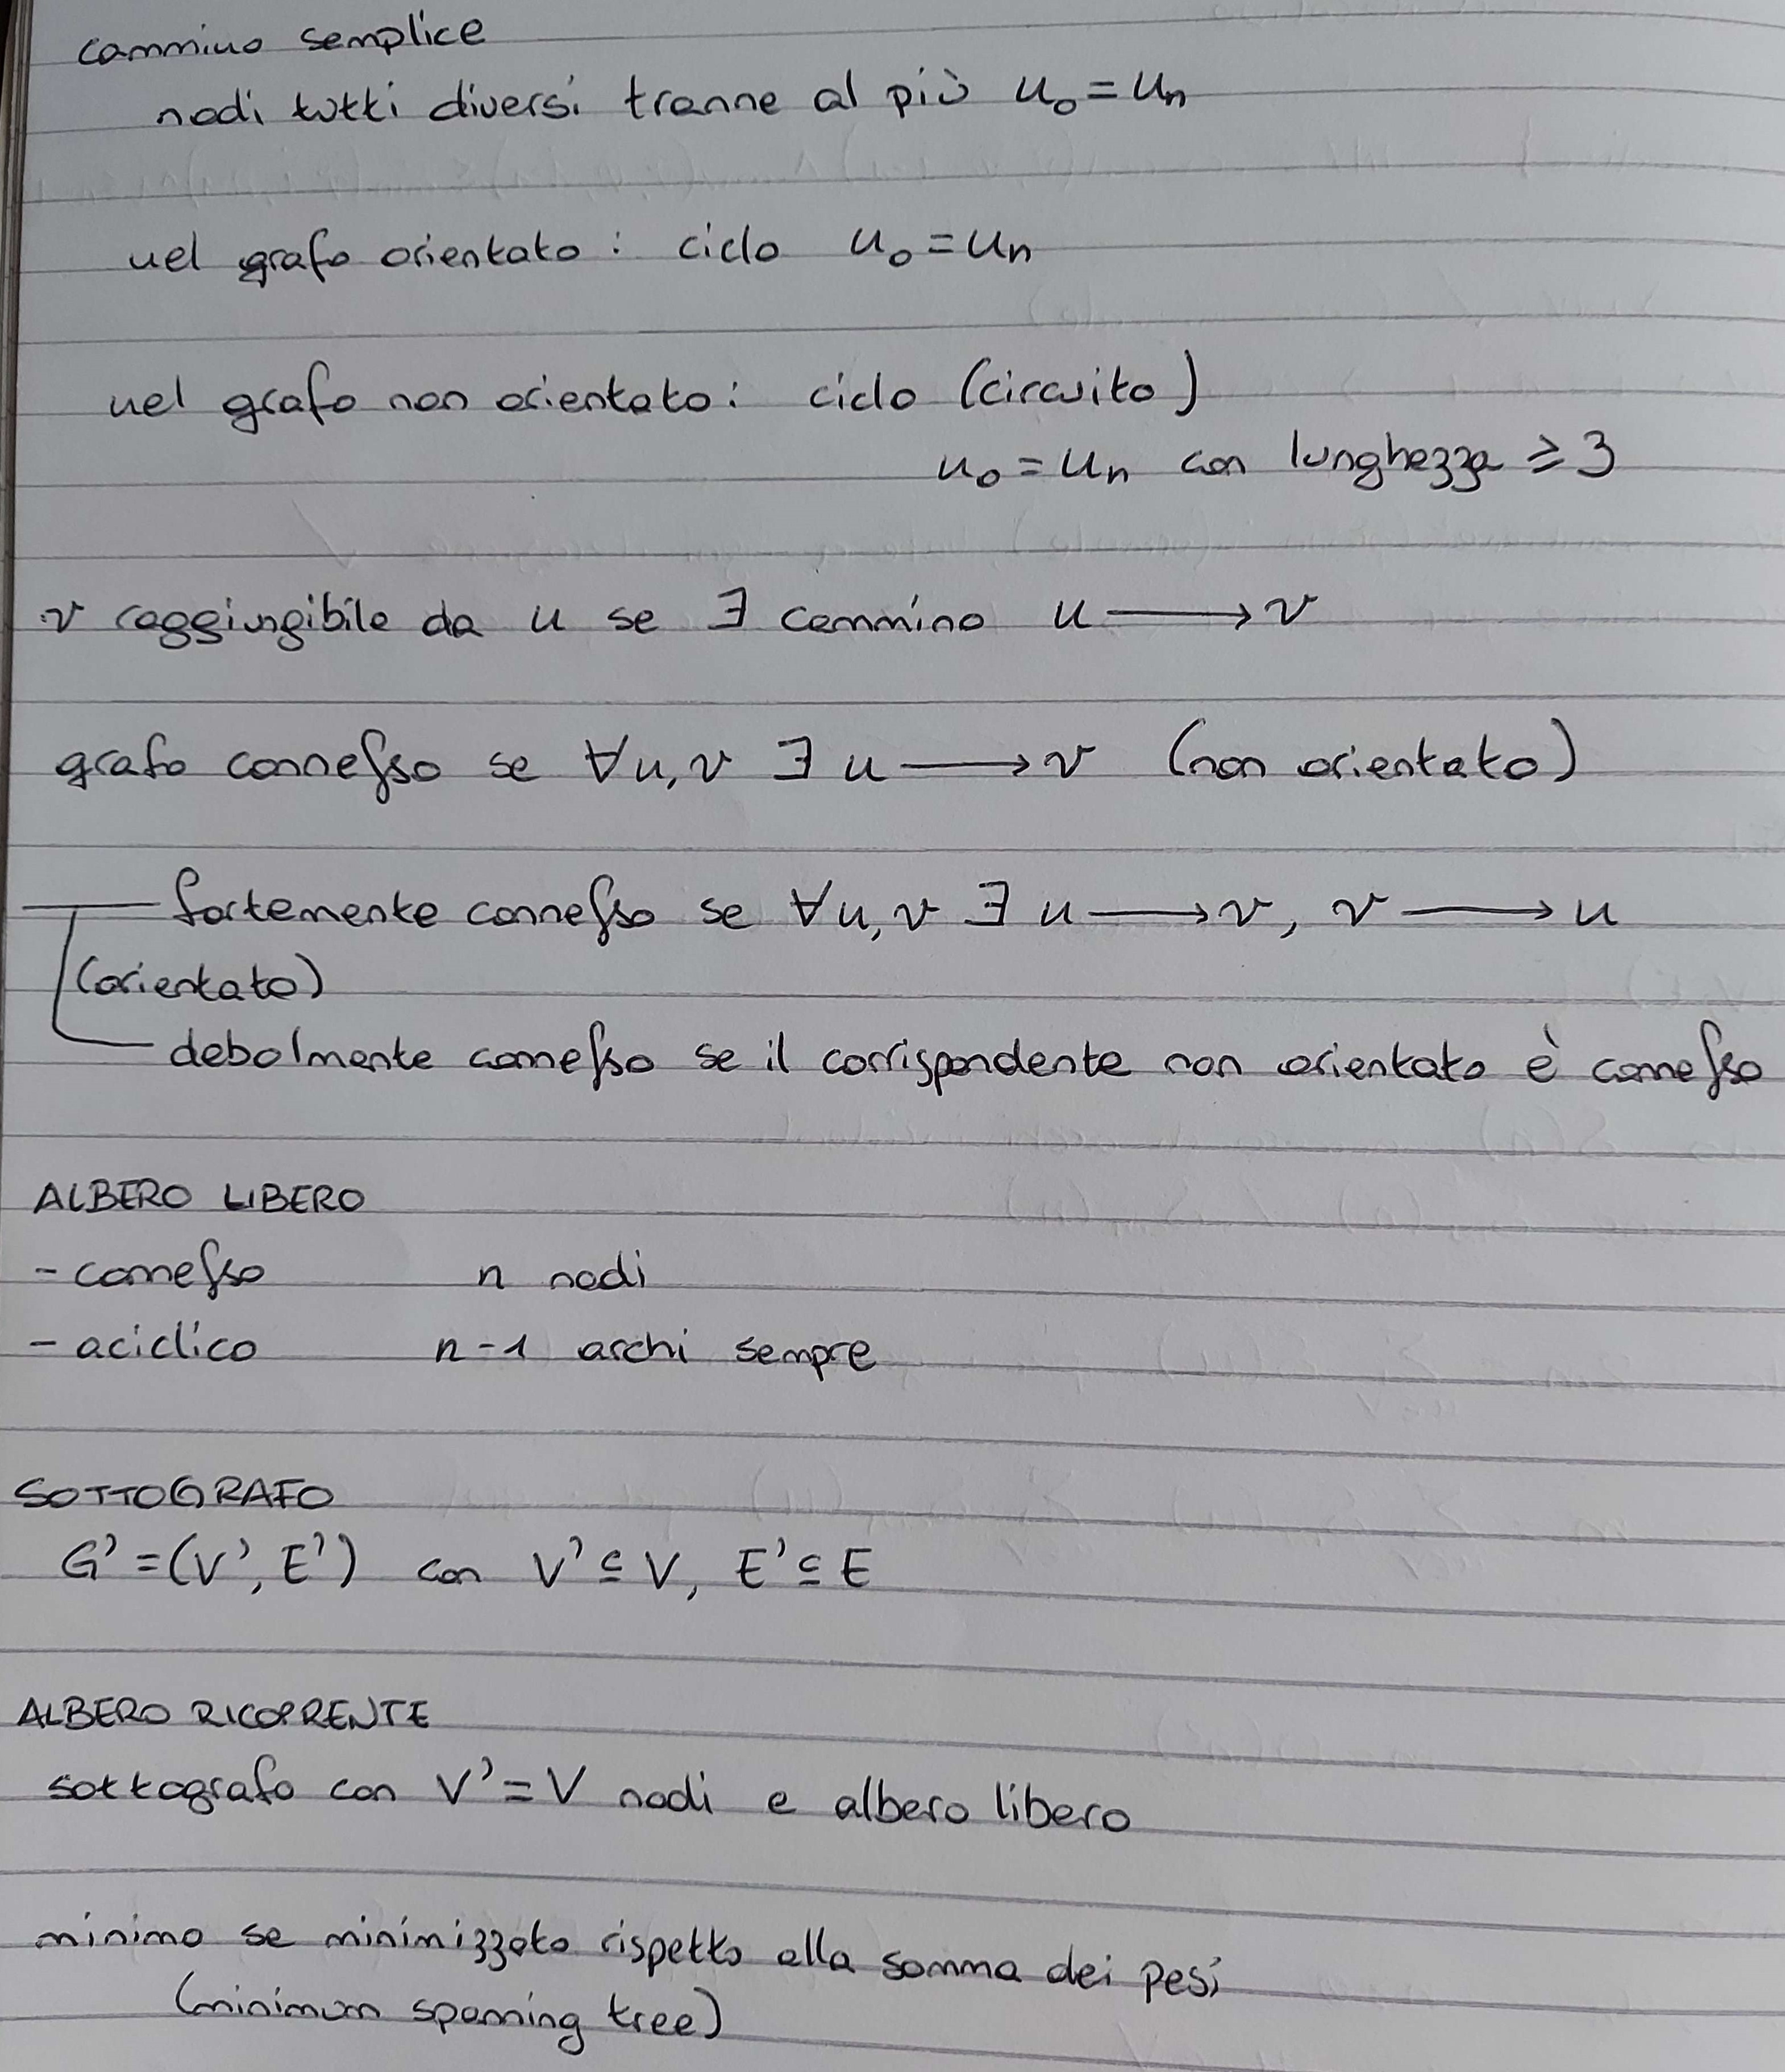 cammino semplice
nodi tutti diversi tranne al più u₀ = uₙ
nel grafo orientato : ciclo u₀ = uₙ
nel grafo non orientato : ciclo (circuito)
u₀ = uₙ con lunghezza ≥ 3
v raggiungibile da u se ∃ cammino u ⟶ v
grafo connesso se ∀u,v ∃ u ⟶ v (non orientato)
fortemente connesso se ∀u,v ∃ u ⟶ v, v ⟶ u
(orientato)
debolmente connesso se il corrispondente non orientato è connesso
ALBERO LIBERO
- connesso n nodi
- aciclico n-1 archi sempre
SOTTOGRAFO
G' = (V', E') con V' ⊆ V, E' ⊆ E
ALBERO RICOPRENTE
sottografo con V' = V nodi e albero libero
minimo se minimizzato rispetto alla somma dei pesi
(minimum spanning tree)